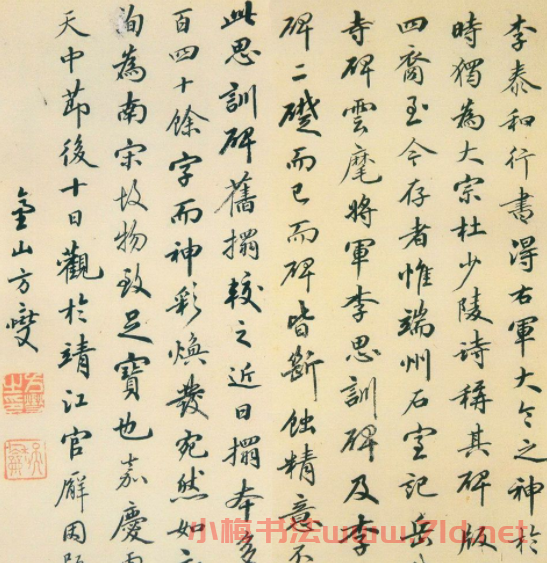 李泰和行書得右軍大令之神於
時獨為大宗杜少陵詩稱其碑版
四裔至今存者惟端州石室記岳
寺碑雲麾將軍李思訓碑及李
碑二礎而已而碑皆斷蝕精意不
此思訓碑舊搨較之近日搨本多
百四十餘字而神彩煥發宛然如
洵為南宋故物致足寶也嘉慶
天中節後十日觀於靖江官廨因題
山方燮
小梅书法www.7ld.net